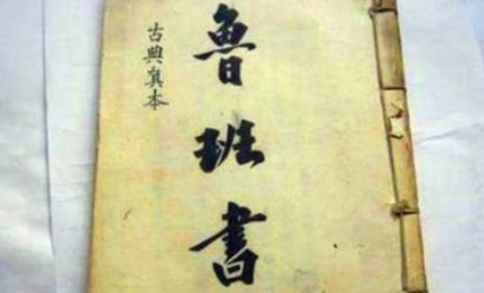 魯班書
古典真本